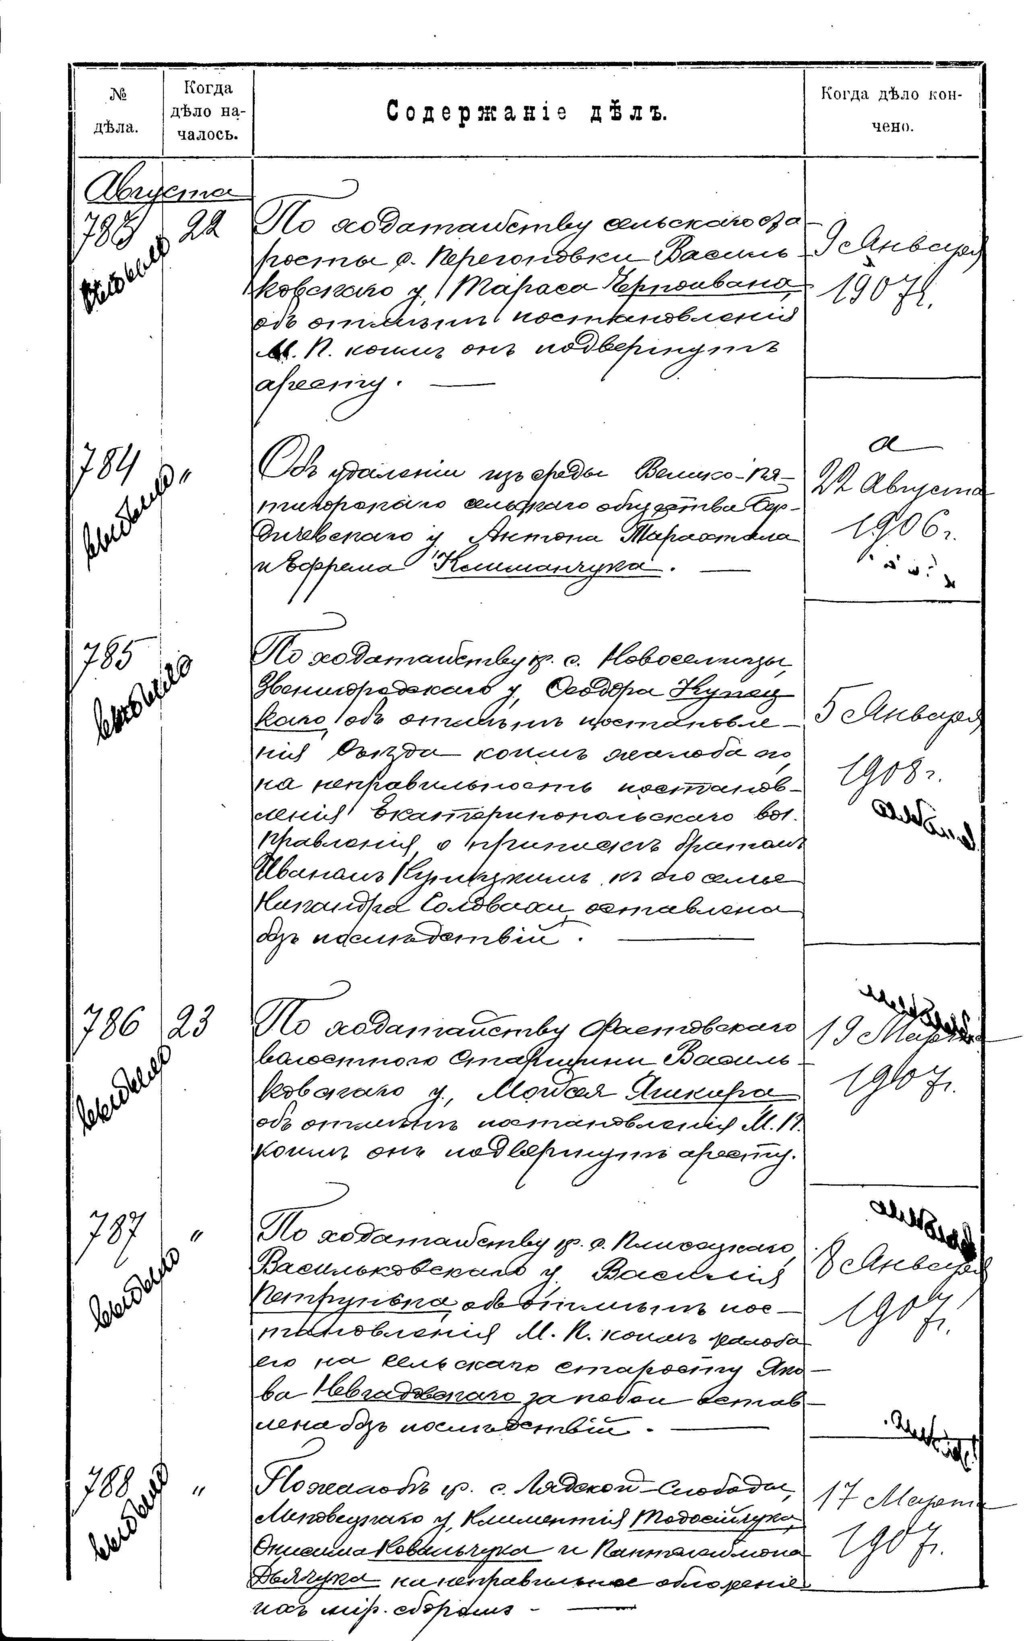 № дѣла.
Когда дѣло началось.
Содержаніе дѣлъ.
Когда дѣло кончено.
Августа
783 22 По ходатайству сельскаго ста-
росты с. Перегоновки Василь-
ковскаго у. Тараса
объ отмѣнѣ постановленія
М. П. коимъ онъ подвергнутъ
аресту. —
9 Января
1907 г.
выбыло
784 " Объ удаленіи изъ среды Велико-Пя-
тигорскаго сельскаго общества Бер-
дичевскаго у. Антона
и Ефрема Климанчука. —
22 Августа
1906 г.
выбыло
785 По ходатайству кр. с. Новоселицы,
Звенигородскаго у. Ѳеодора Купец
каго, объ отмѣнѣ постановле-
нія Съѣзда коимъ жалоба его,
на неправильность постанов-
ленія Екатеринопольскаго вол.
Правленія, о припискѣ братомъ
Иваномъ Купецкимъ къ его семьѣ
Никандра оставлена
безъ послѣдствій. —
5 Января
1908 г.
выбыло
выбыло
786 23 По ходатайству Фастовскаго
волостного Старшины Василь-
ковскаго у., Мойсея Яшкира
объ отмѣнѣ постановленія М. П.
коимъ онъ подвергнутъ аресту.
19 Марта
1907 г.
выбыло
787 " По ходатайству кр. с. Плисецкаго,
Васильковскаго у. Василія
Петрунька, объ отмѣнѣ пос-
тановленія М. П. коимъ жалоба
его на сельскаго старосту Яко-
ва за побои остав-
лена безъ послѣдствій. —
8 Января
1907 г.
выбыло
788 " По жалобѣ кр. с. Лядской-Слободы,
Липовецкаго у. Климентія Тодосійчука,
Онисима Ковальчука и Пантелеймона
Дьячука на неправильное обложеніе
ихъ мір. сборомъ —
17 Марта
1907 г.
выбыло